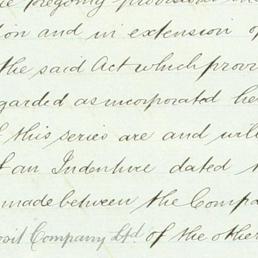 the foregoing provisions in
ion and in extension of
the said Act which provi
egarded as incorporated her
f this series are and will
f an Indenture dated t
made between the Compa
osit Company Ltd of the other